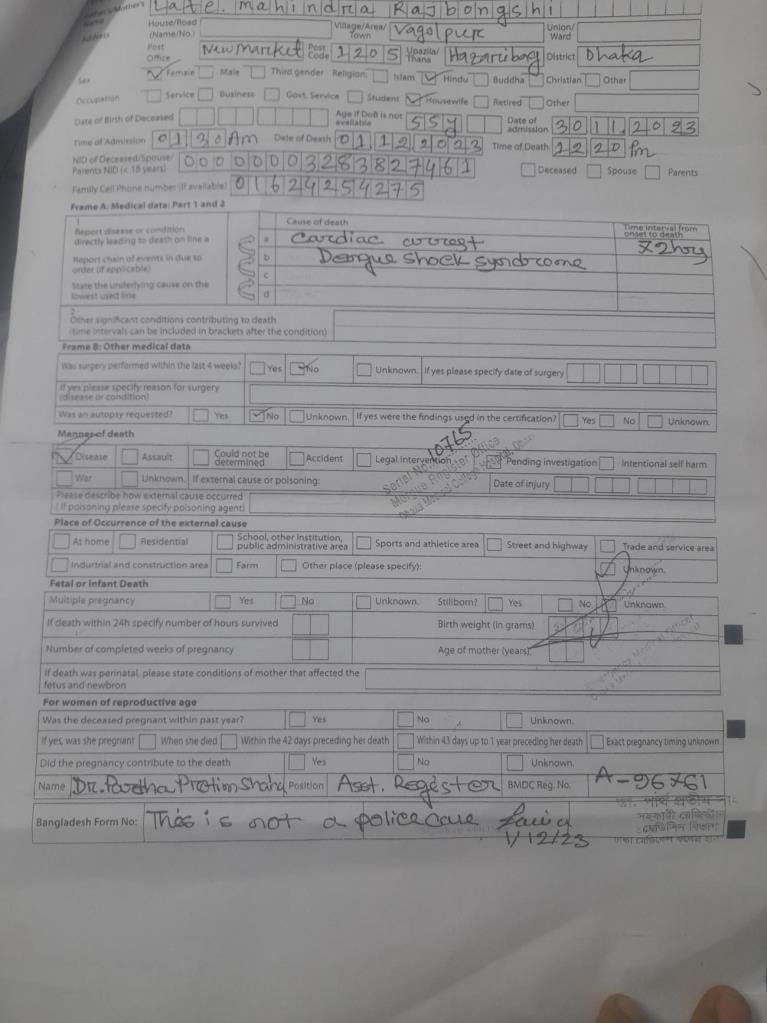 Father's/Mother's Name Late. mahindra Rajbongshi
Address House/Road (Name/No.) Village/Area/Town Vagolpur Union/Ward
Post Office Newmarket Post Code 1205 Upazila/Thana Hazaribag District Dhaka
Sex Female Male Third gender Religion: Islam Hindu Buddha Christian Other
Occupation Service Business Govt. Service Student Housewife Retired Other
Date of Birth of Deceased Age if DoB is not available 55y Date of admission 30112023
Time of Admission 0130Am Date of Death 01122023 Time of Death 1220 Pm
NID of Deceased/Spouse/Parents NID (< 18 years) 00000003283827461 Deceased Spouse Parents
Family Cell Phone number (if available) 01624254275
Frame A: Medical data: Part 1 and 2
1
Report disease or condition directly leading to death on line a
Report chain of events in due to order (if applicable)
State the underlying cause on the lowest used line
Cause of death
Time interval from onset to death
a Cardiac arrest 72hrs
b Dengue Shock syndrome
c
d
2
Other significant conditions contributing to death (time intervals can be included in brackets after the condition)
Frame B: Other medical data
Was surgery performed within the last 4 weeks? Yes No Unknown. If yes please specify date of surgery
If yes please specify reason for surgery (disease or condition)
Was an autopsy requested? Yes No Unknown. If yes were the findings used in the certification? Yes No Unknown.
Manner of death
Disease Assault Could not be determined Accident Legal intervention Pending investigation Intentional self harm
War Unknown. If external cause or poisoning: Date of injury
Serial No. 10765
Morgue Register Office
Dhaka Medical College Hospital, Dhaka
Please describe how external cause occurred (If poisoning please specify poisoning agent)
Place of Occurrence of the external cause
At home Residential School, other institution, public administrative area Sports and athletice area Street and highway Trade and service area
Indurtrial and construction area Farm Other place (please specify): Unknown.
Fetal or infant Death
Multiple pregnancy Yes No Unknown. Stillborn? Yes No Unknown.
If death within 24h specify number of hours survived Birth weight (in grams)
Number of completed weeks of pregnancy Age of mother (years)
Emergency Medical Officer
If death was perinatal, please state conditions of mother that affected the fetus and newbron
For women of reproductive age
Was the deceased pregnant within past year? Yes No Unknown.
If yes, was she pregnant When she died Within the 42 days preceding her death Within 43 days up to 1 year preceding her death Exact pregnancy timing unknown
Did the pregnancy contribute to the death Yes No Unknown.
Name Dr. Partha Protim Shaha Position Asst. Register BMDC Reg. No. A-96761
Bangladesh Form No: This is not a police case
1/12/23